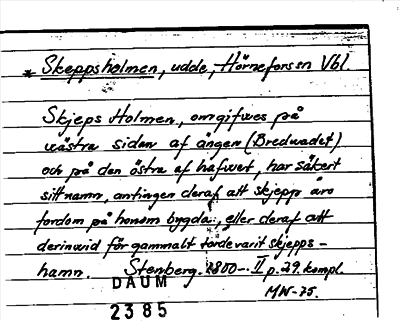 * Skeppsholmen, udde, Hörnefors sn Vbl.
Skjeps Holmen, omgifves på
västra sidan af ängen (Bredvadet)
och på den östra af hafvet, har säkert
sitt namn, antingen deraf att skjepp äro
fordom på honom bygda, eller deraf att
derinvid för gammalt torde varit skjepps-
hamn. Stenberg. 1800-. II p. 29. kompl.
DAUM MW-75.
2385